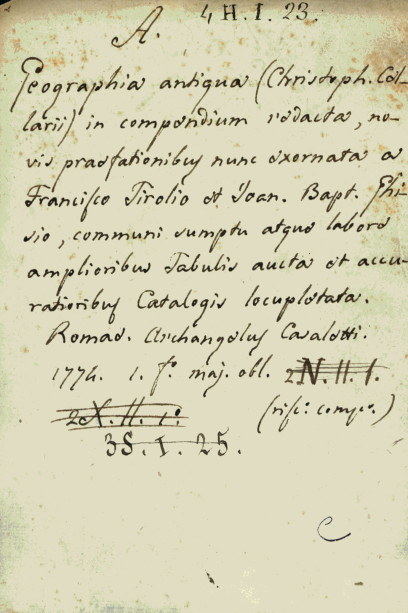 4 H. I. 23.
A.
Geographia antiqua (Christoph. Cel-
larii) in compendium redacta, no-
vis praefationibus nunc exornata a
Francisco Tirolio et Joan. Bapt. Ghi-
sio, communi sumptu atque labore
amplioribus Tabulis aucta et accu-
ratioribus Catalogis locupletata.
Romae. Archangelus Casaletti.
1774. 1. f.º maj. obl. 2N. II. 1.
2X. II. 1.º
3S. I. 25.
C